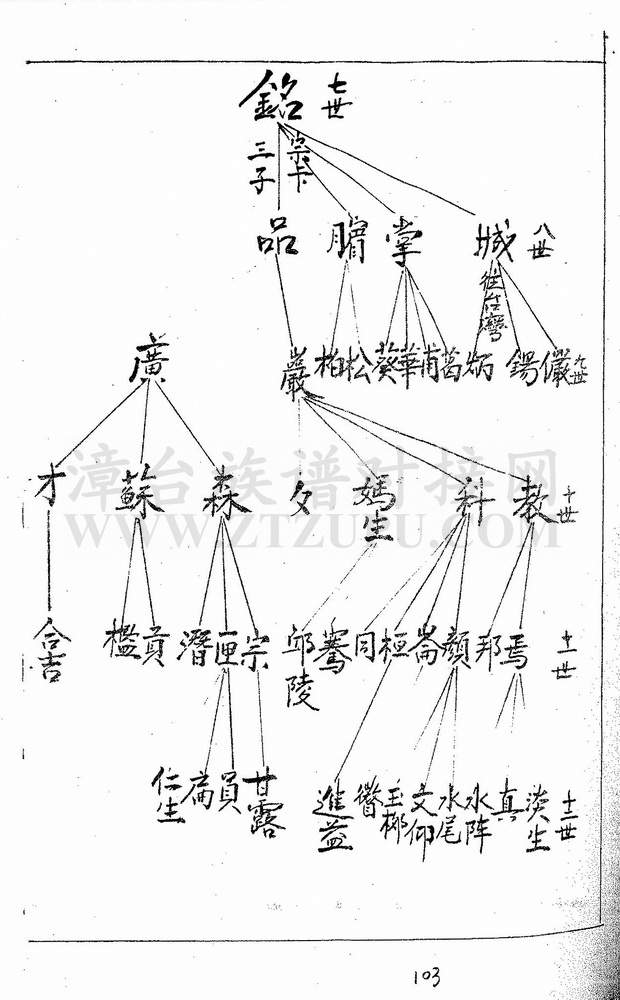 銘 七世
三子 宗卡
品 䐉 掌 城 八世
往台灣
廣 巖 柏 松 葵 華 甫 葛 炳 錫 儼 九世
才 蘇 森 夂 媽生 科 教 十世
漳台族谱对接网
WWW.ZTZUPU.COM
合吉 檻 貢 潛 匣 宗 邱陵 騫 同 桓 崙 顏 邦 焉 十一世
仁生 扁 員 甘露 進益 玉梛 文仰 水尾 水阵 真 淡生 十二世
103